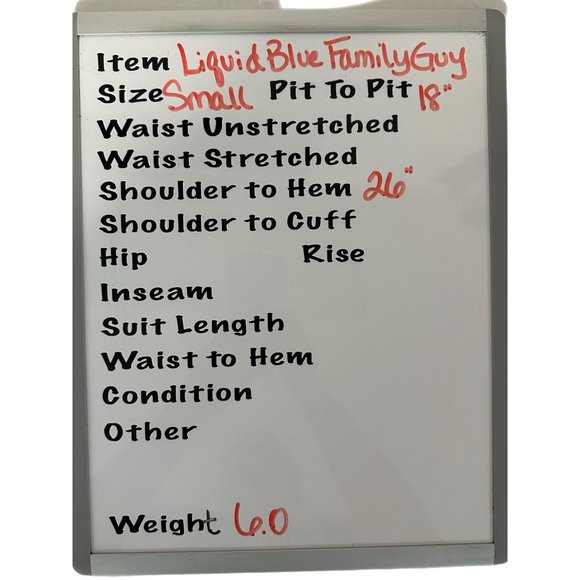 Item Liquid Blue Family Guy
Size Small Pit To Pit 18"
Waist Unstretched
Waist Stretched
Shoulder to Hem 26"
Shoulder to Cuff
Hip Rise
Inseam
Suit Length
Waist to Hem
Condition
Other
Weight 6.0